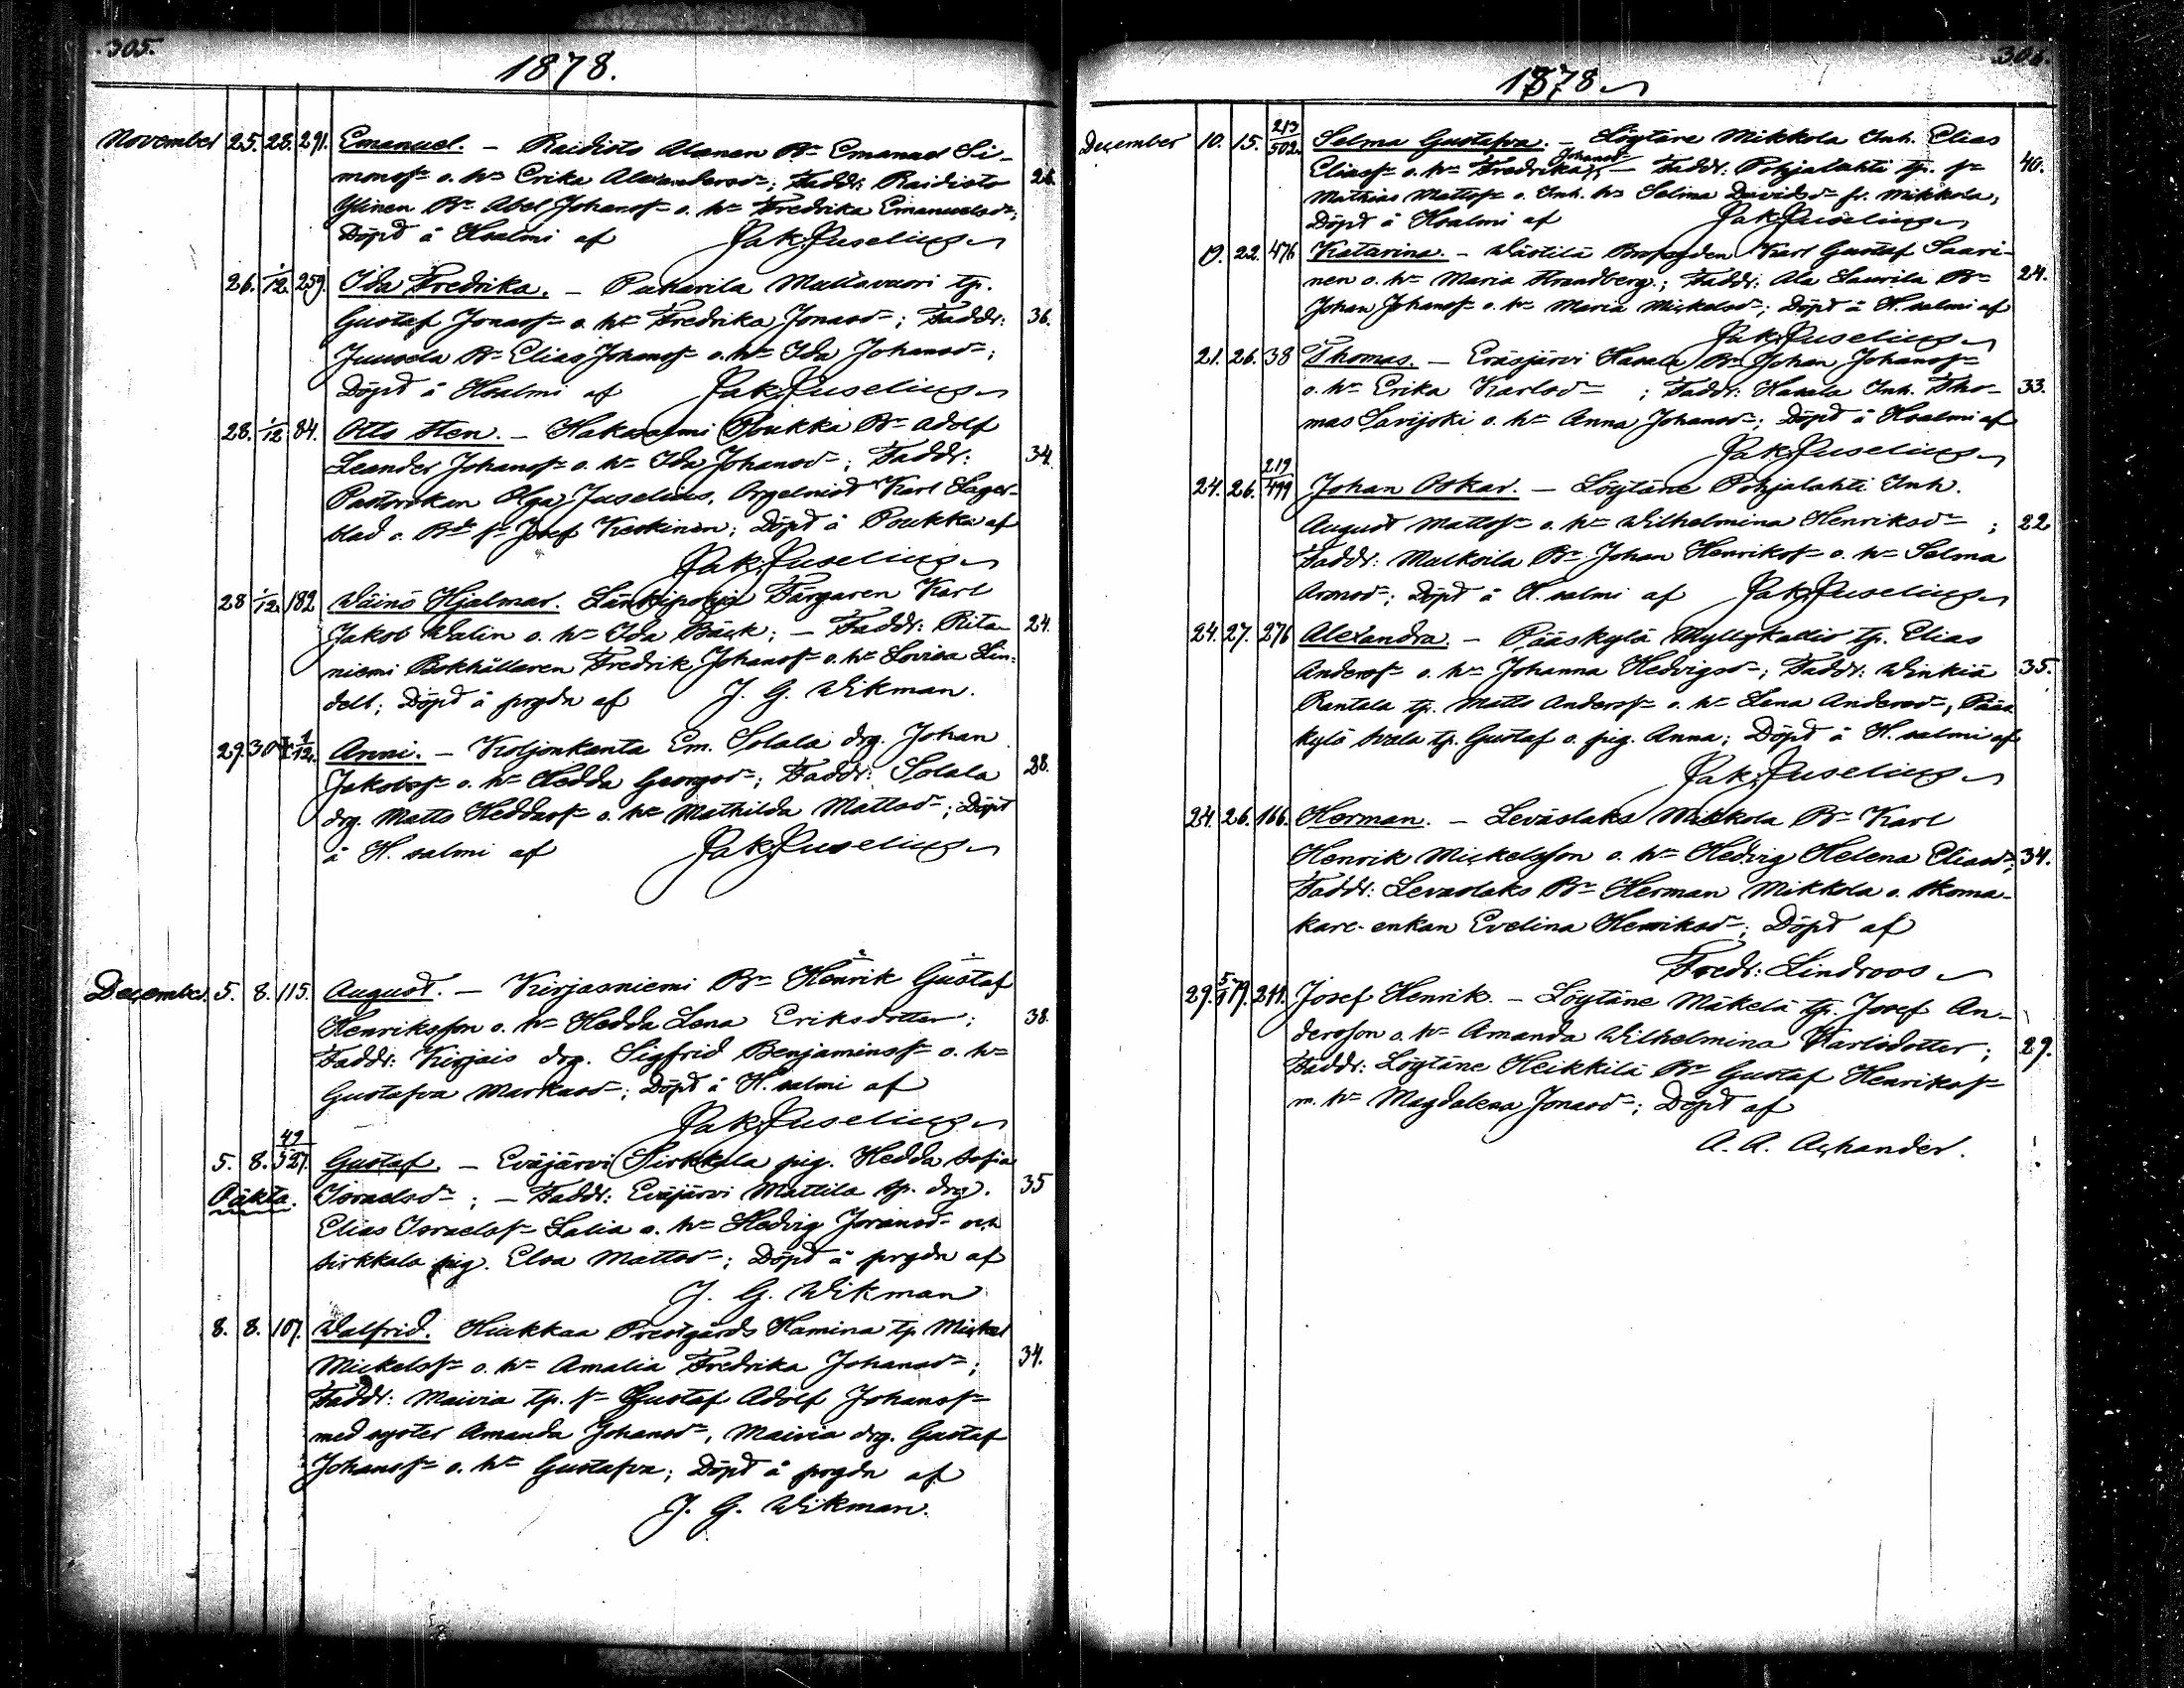 305.
1878.
November 25. 28. 291. Emanuel. – Raidisto Alanen Bn Emanuel Si-
monss. o. h. Erika Alexandersdr; Faddr: Raidisto
Ylinen Bn Abel Johanss. o. h. Fredrika Emanuelsdr;
Döpt å Hsalmi af Jak. Juselius
26. 1/12. 259. Ida Fredrika. – Puharila Mullavuori tp.
Gustaf Jonass. o. h. Fredrika Jonasdr; Faddr: 36.
Juusela Bn Elias Johanss. o. h. Ida Johansdr;
Döpt å Hsalmi af Jak. Juselius
28. 1/12 84. Otto Sten. – Hakasalmi Poukka Bn Adolf
Leander Johanss. o. h. Ida Johansdr; Faddr: 34.
Pastorskan Olga Juselius, Orgelnist Karl Lager-
blad o. Bde sn Josef Keskinen; Döpt å Poukka af
Jak. Juselius
28 1/12. 182 Wäinö Hjalmar. Länkipohja Färgaren Karl
Jakob Walin o. h. Ida Bäck; – Faddr: Rita- 24.
niemi Bokhållaren Fredrik Johanss. o. h. Lovisa Lin-
dell; Döpt å prgdn af J. G. Wikman.
29. 30 1/12. Anni. – Koljonkanta Em. Solala drg. Johan
Jakobss. o. h. Hedda Georgsdr; Faddr: Solala 28.
drg. Matts Heddass. o. h. Mathilda Mattsdr; Döpt
å H. salmi af Jak. Juselius
December. 5. 8. 115. August. – Kirjasniemi Bn Henrik Gustaf
Henriksson o. h. Hedda Lena Eriksdotter; 38.
Faddr: Kirjais drg. Sigfrid Benjaminss. o. h.
Gustafva Markusdr; Döpt å H. salmi af
Jak. Juselius
49
5. 8. 527. Gustaf. – Eväjärvi Sirkkala pig. Hedda Sofia
Oäkta. Israelsdr; – Faddr: Eväjärvi Mattila sp. drg. 35
Elias Israelss. Lalia o. h. Hedvig Göransdr och
Sirkkala pig. Elsa Mattsdr; Döpt å prgdn af
J. G. Wikman
8. 8. 107. Walfrid. Hiukkaa Prestgårds Hamina tp. Mickel
Mickelss. o. h. Amalia Fredrika Johansdr; 34.
Faddr: Maivia tp. sn Gustaf Adolf Johanss.
med syster Amanda Johansdr, Maivia drg. Gustaf
Johanss. o. h. Gustafva; Döpt å prgdn af
J. G. Wikman.
306.
1878.
213
December 10. 15. 502. Selma Gustafva. – Löytäne Mikkola Inh. Elias
Eliass. o. h. Fredrika Johansdr – Faddr: Pohjalahti tp. sn 40.
Mathias Mattss. o. Inh. h. Selma Davidsdr fr. Mikkola,
Döpt å Hsalmi af Jak. Juselius
19. 22. 476 Katarina. – Västilä Brofogden Karl Gustaf Saari-
nen o. h. Maria Strandberg; Faddr: Ala Saurila Bn 24.
Johan Johanss. o. h. Maria Mickelsdr; Döpt å H. salmi af
Jak. Juselius
21. 26. 38 Thomas. – Eräsjärvi Hasala Bn Johan Johanss.
o. h. Erika Karlsdr; Faddr: Hasala Inh. Tho- 33.
mas Savijoki o. h. Anna Johansdr; Döpt å Hsalmi af
Jak. Juselius
219
24. 26. 499 Johan Oskar. – Löytäne Pohjalahti Inh.
August Mattss. o. h. Wilhelmina Henriksdr; 22
Faddr: Malkoila Bn Johan Henrikss. o. h. Selma
Aronsdr; Döpt å H. salmi af Jak. Juselius
24. 27. 276 Alexandra. – Pääskylä Myllykallio tp. Elias
Anderss. o. h. Johanna Hedvigsdr; Faddr: Winkiä 35.
Rantala tp. Matts Anderss. o. h. Lena Andersdr, Pääs
kylä tp. Gustaf o. pig. Anna; Döpt å H. salmi af
Jak. Juselius
24. 26. 166. Herman. – Leväslaks Mikkola Bn Karl
Henrik Mickelsson o. h. Hedvig Helena Eliasdr; 34.
Faddr: Leväslaks Bn Herman Mikkola o. skoma-
kare-enkan Evelina Henriksdr; Döpt af
Fredr: Lindroos
29. 5/1 79. 211. Josef Henrik. – Löytäne Mäkelä tp. Josef An-
dersson o. h. Amanda Wilhelmina Karlsdotter; 29.
Faddr: Löytäne Heikkilä Bn Gustaf Henrikss.
m. h. Magdalena Jonasdr; Döpt af
A. A. Achander.